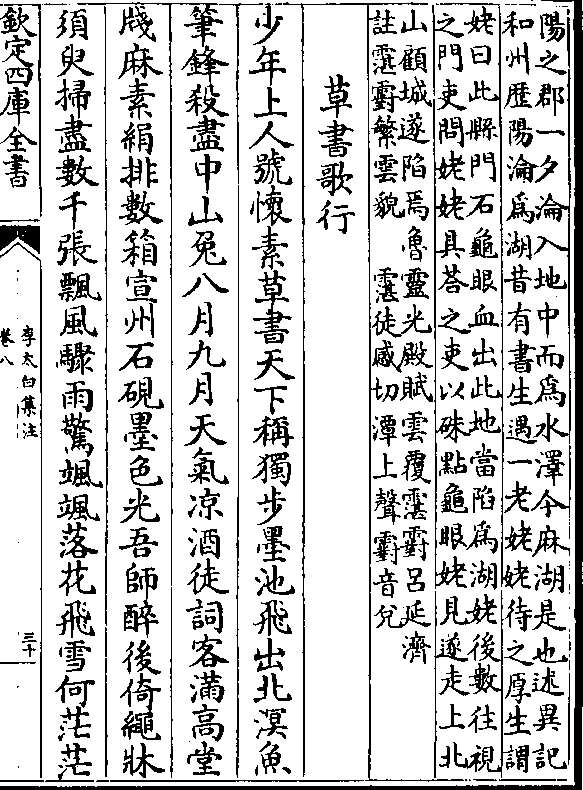 陽之郡一夕淪入地中而為水澤今麻湖是也述異記
和州歷陽淪為湖昔有書生遇一老姥姥待之厚生謂
姥曰此縣門石龜眼血出此地當陷為湖姥後數往視
之門吏問姥姥具荅之吏以硃點龜眼姥見遂走上北
山顧城遂陷焉魯靈光殿賦雲覆霮䨴呂延濟
註霮䨴繁雲貌 霮徒感切潭上聲䨴音兌
草書歌行
少年上人號懷素草書天下稱獨步墨池飛出北溟魚
筆鋒殺盡中山兔八月九月天氣凉酒徒詞客滿高堂
牋麻素絹排數箱宣州石硯墨色光吾師醉後倚繩牀
須臾掃盡數千張飄風驟雨驚颯颯落花飛雪何茫茫
欽定四庫全書
李太白集注
卷八
三十